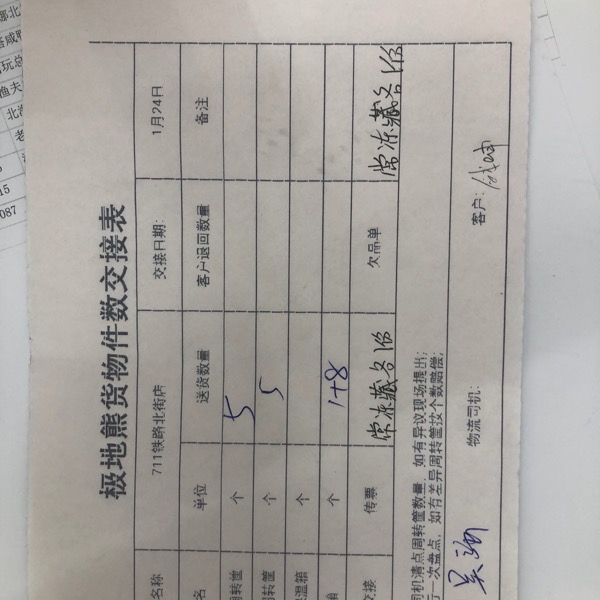 极地熊货物件数交接表
名称 711铁路北街店 交接日期: 1月24日
名 单位 送货数量 客户退回数量 备注
周转筐 个 5
周转筐 个 5
温箱 个
箱 个 1+8
交接 传票 常冻藏各1份 欠品单 常冻藏各1份
司机清点周转筐数量,如有异议现场提出;
一次盘点,如有差异周转筐按个数赔偿;
物流司机: 客户: